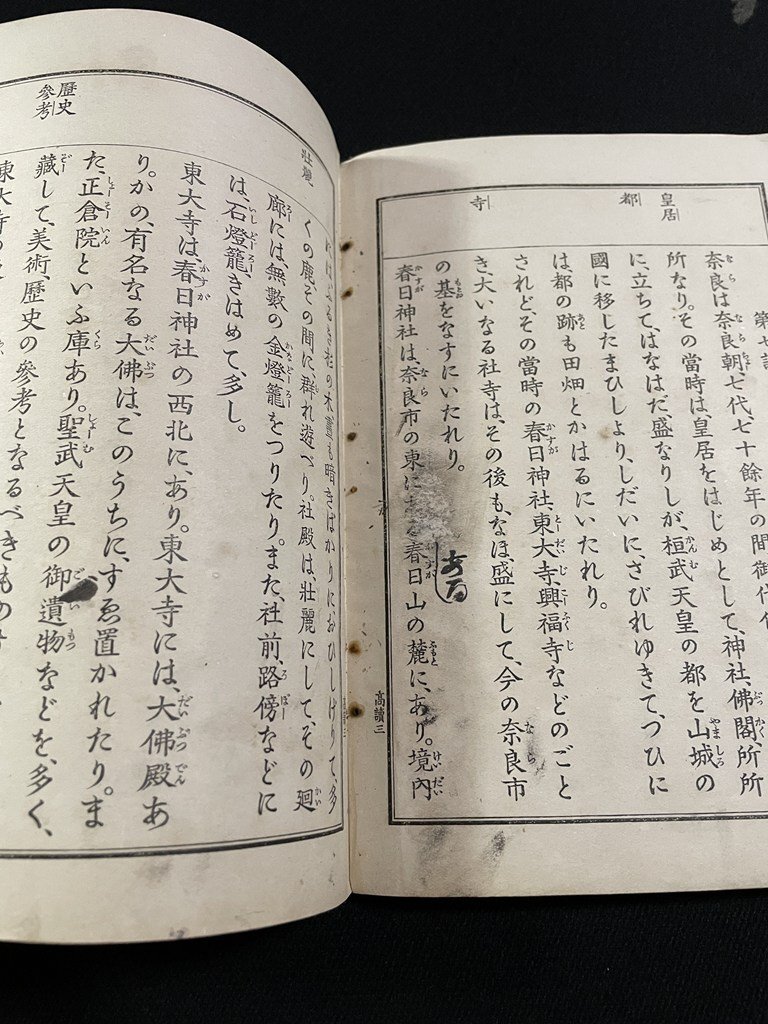 皇居
都
寺
奈良は奈良朝、七代七十餘年の間御代
所なり。その當時は、皇居をはじめとして、神社、佛閣、所所
に、立ちて、はなはだ、盛なりしが、桓武天皇の都を山城の
國に移したまひしより、しだいに、さびれゆきて、つひに
は、都の跡も田畑とかはるにいたれり。
されど、その當時の春日神社、東大寺、興福寺などのごと
き、大いなる社寺は、その後も、なほ盛にして、今の奈良市
の基をなすにいたれり。
春日神社は、奈良市の東にある春日山の麓に、あり。境內
ある
高讀三
壯麗
歷史
參考
木晝も暗きばかりにおひしげりて、多
くの鹿その間に、群れ遊べり。社殿は、壯麗にして、その廻
廊には、無數の金燈籠をつりたり。また、社前、路傍などに
は、石燈籠、きはめて、多し。
東大寺は、春日神社の西北に、あり。東大寺には、大佛殿あ
り。かの、有名なる大佛は、このうちに、すゑ置かれたり。ま
た、正倉院といふ庫あり。聖武天皇の御遺物などを、多く、
藏して、美術、歷史の參考となるべきもの
東大寺の